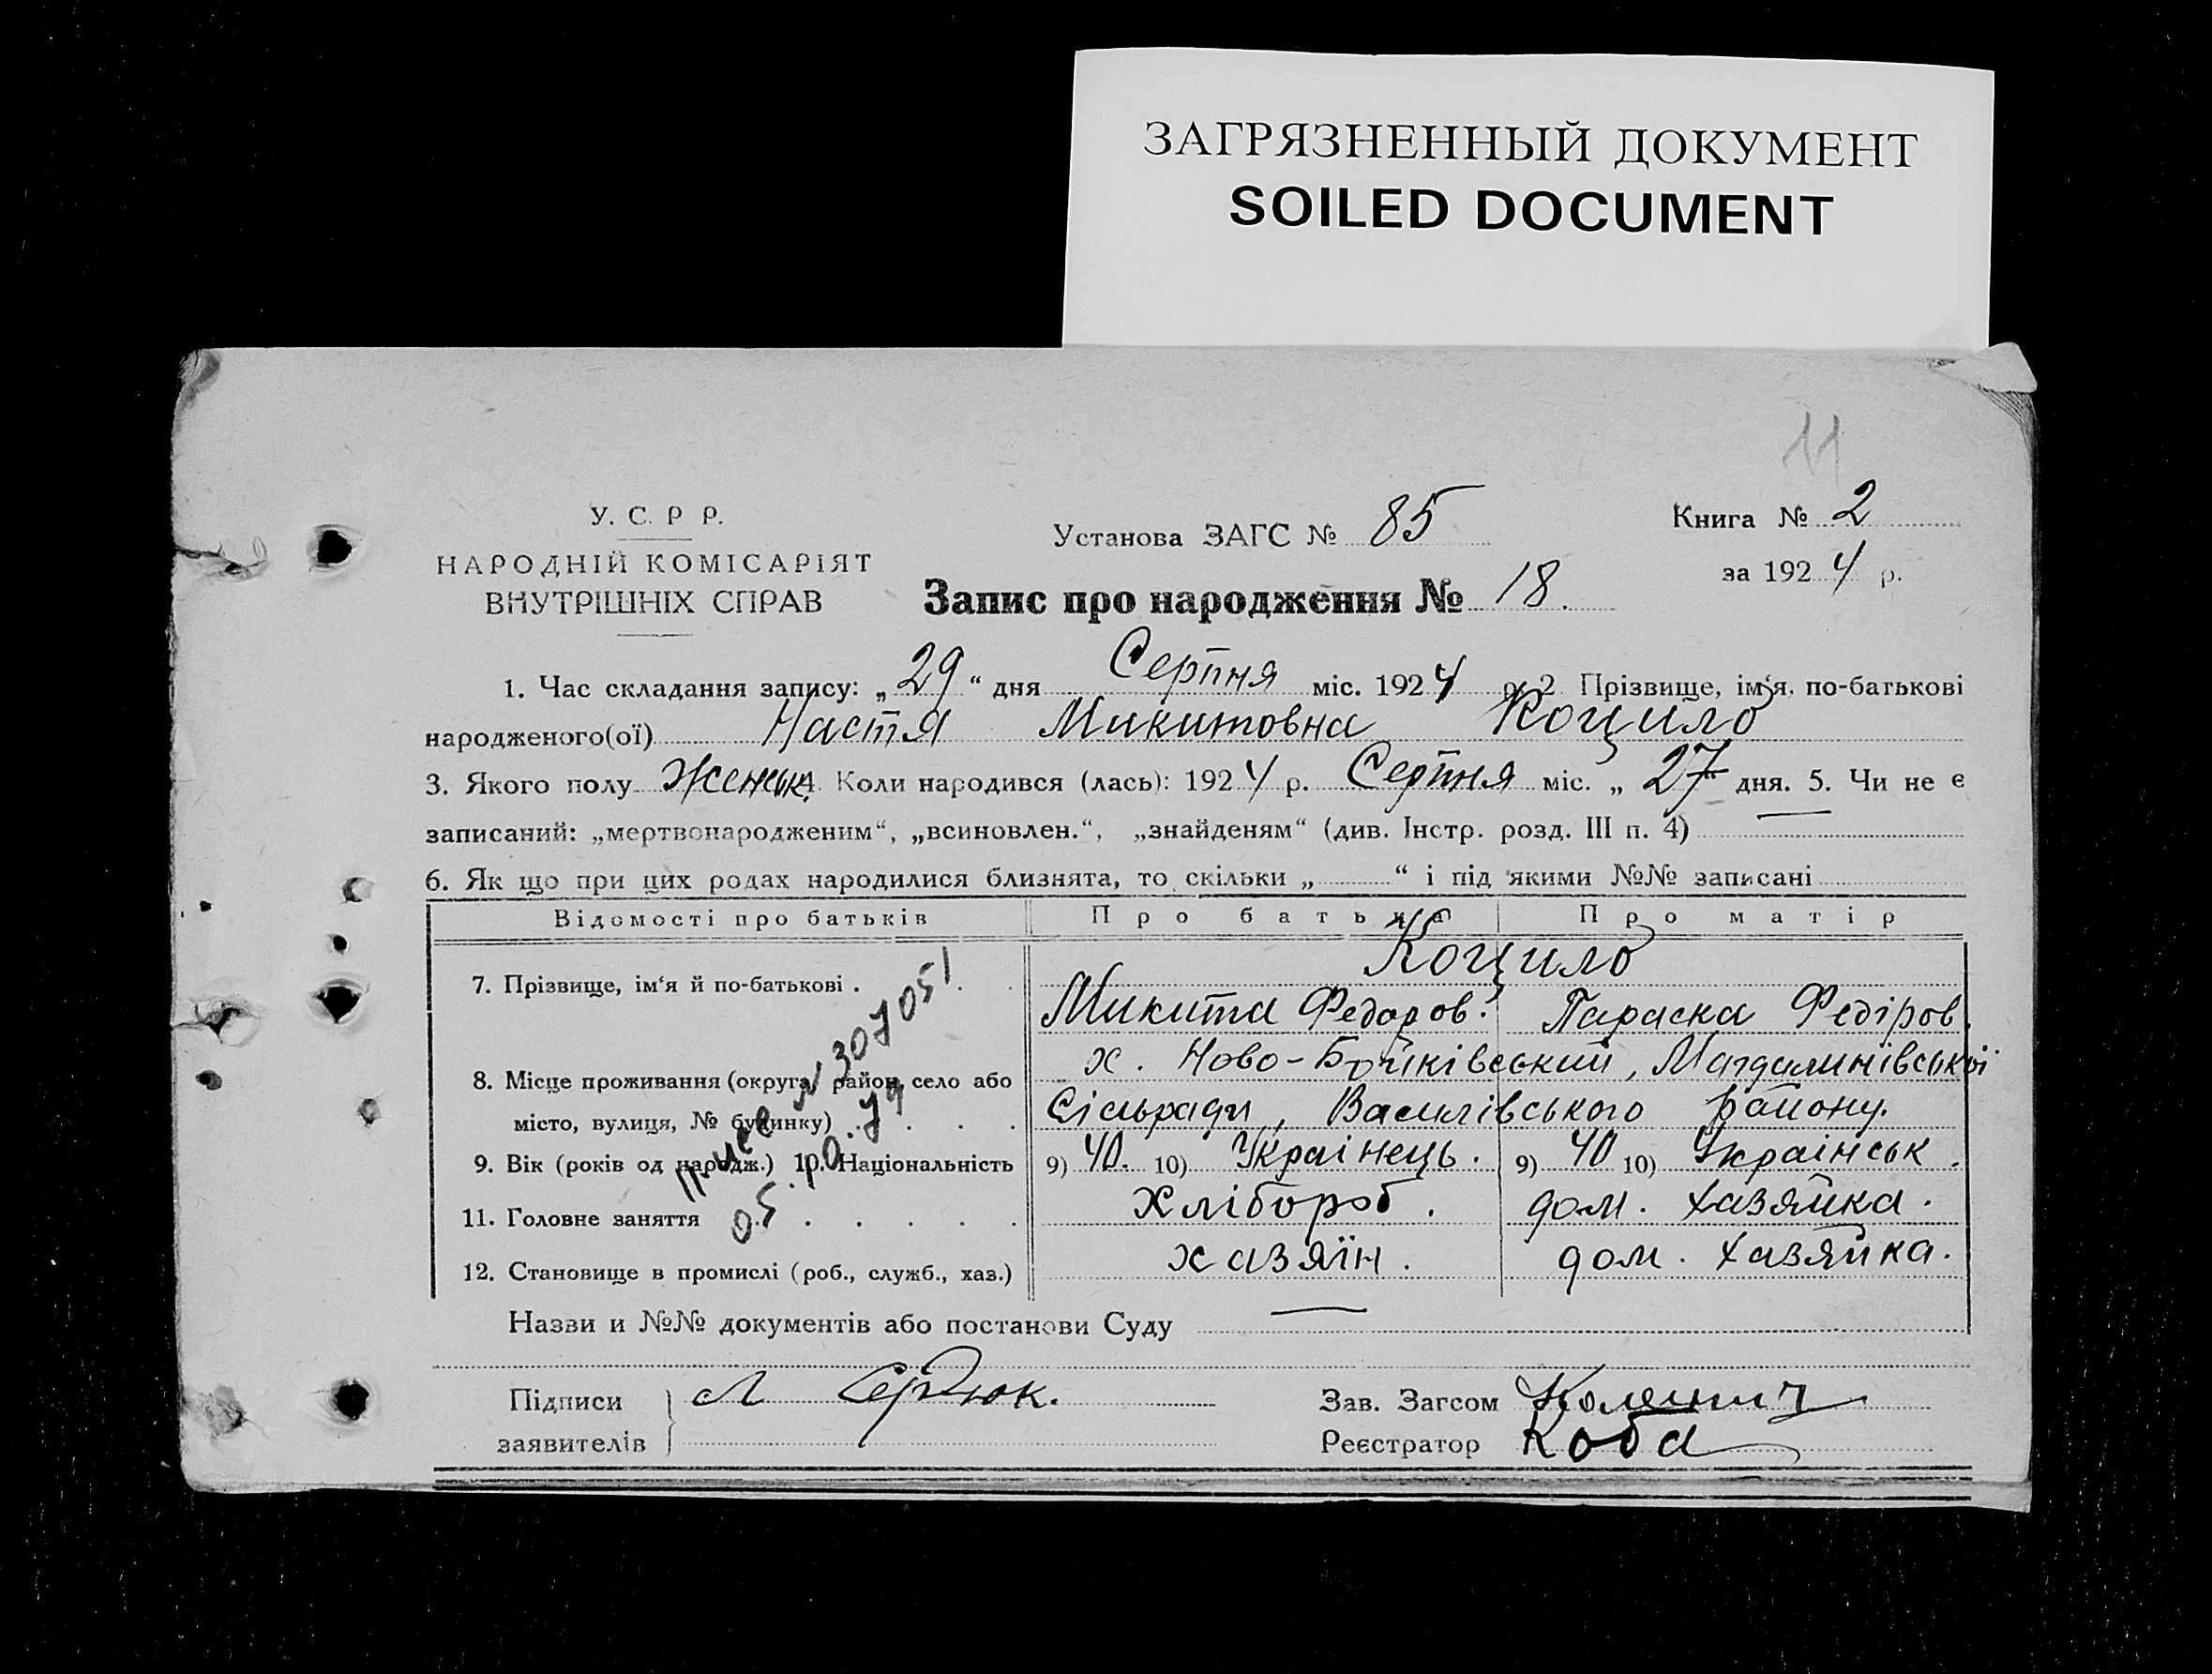 ЗАГРЯЗНЕННЫЙ ДОКУМЕНТ
SOILED DOCUMENT
11
У. С. Р. Р.
НАРОДНІЙ КОМІСАРІЯТ
ВНУТРІШНІХ СПРАВ
Установа ЗАГС № 85
Книга № 2
за 1924 р.
Запис про народження № 18.
1. Час складання запису: „29“ дня Серпня міс. 1924 р. 2 Прізвище, ім‘я, по-батькові
народженого(ої) Настя Микитовна Коцило
3. Якого полу Женськ. 4. Коли народився (лась): 1924 р. Серпня міс. „27“ дня. 5. Чи не є
записаний: „мертвонародженим“, „всиновлен.“, „знайденям“ (див. Інстр. розд. III п. 4) —
6. Як що при цих родах народилися близнята, то скільки „ “ і під якими №№ записані
Відомості про батьків Про батька Про матір
7. Прізвище, ім‘я й по-батькові . Коцило
Микита Федоров. Параска Федіров.
8. Місце проживання (округа, район, село або х. Ново-Бойківський, Магдалинівської
місто, вулиця, № будинку) Сільради, Василівського району.
9. Вік (років од народж.) 10. Національність 9) 40. 10) Українець. 9) 40 10) Українськ.
11. Головне заняття Хлібороб. дом. хазяйка.
12. Становище в промислі (роб., служб., хаз.) хазяїн. дом. хазяйка.
N 307051
05.10.79
Назви и №№ документів або постанови Суду —
Підписи
заявителів
Л Сердюк.
Зав. Загсом
Реєстратор Коба